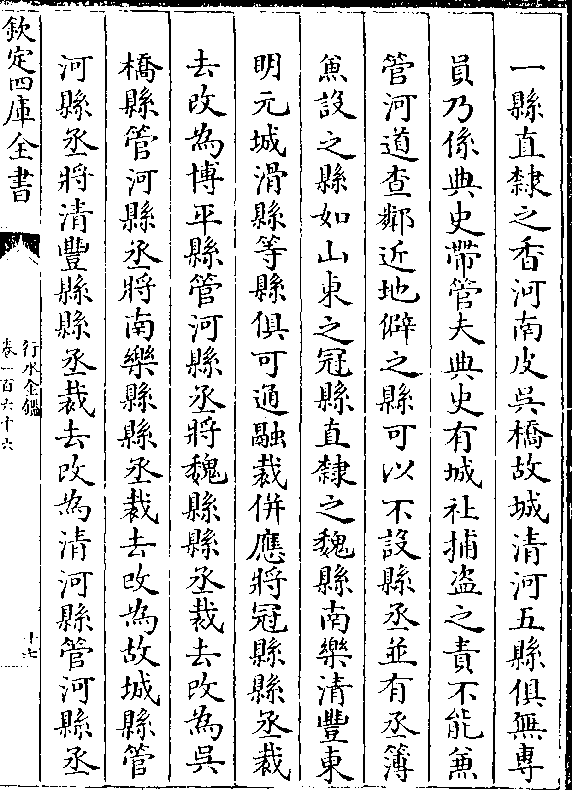 一縣直隸之香河南皮吳橋故城清河五縣俱無專
員乃係典史帶管夫典史有城社捕盗之責不能兼
管河道查鄰近地僻之縣可以不設縣丞並有丞簿
兼設之縣如山東之冠縣直隸之魏縣南樂清豐東
明元城滑縣等縣俱可通融裁併應將冠縣縣丞裁
去改為博平縣管河縣丞將魏縣縣丞裁去改為吳
橋縣管河縣丞將南樂縣縣丞裁去改為故城縣管
河縣丞將清豐縣縣丞裁去改為清河縣管河縣丞
欽定四庫全書
行水金鑑
卷一百六十六
十七